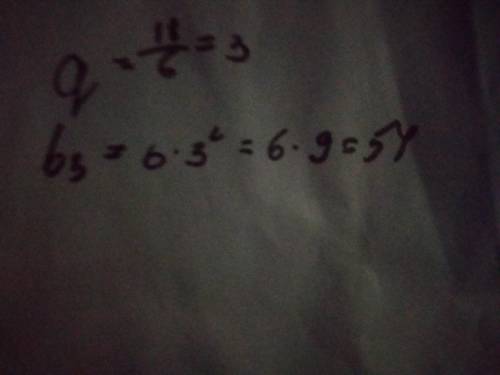 q = 18/6 = 3
b₃ = 6 · 3² = 6 · 9 = 54